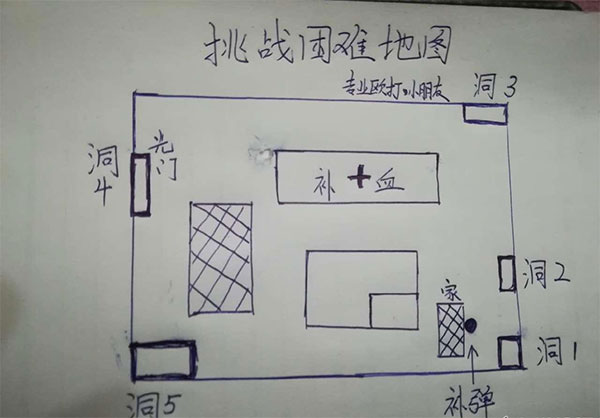 挑战困难地图
专业欧打小朋友
洞3
光门
洞4
补+血
洞2
家
洞1
补弹
洞5